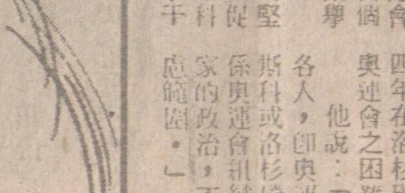 四年在洛杉
奧運會之困難
他說：「
各人，卽奧運
斯科或洛杉磯
係奧運會組織
家的政治，不
慮範圍。」
會
個
舉
堅
促
科
干